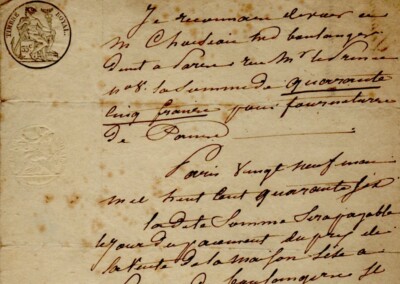 TIMBRE ROYAL
Je reconnais devoir a
M Choiseau md boulanger
dmt a Paris rue Mr le Prince
no 8. la somme de quarante
cinq francs pour fourniture
de Pain
Paris Vingt neuf mai
mil huit cent quarante six
la dite Somme sera payable
le jour du payement du prix de
la Vente de la maison sise a
boulangerie